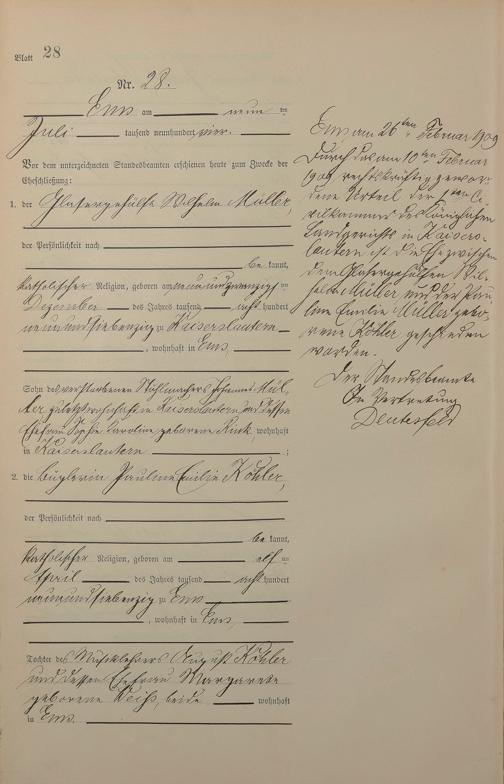 Blatt 28
Nr. 28.
Ems am neun ten
Juli tausend neunhundert vier.
Vor dem unterzeichneten Standesbeamten erschienen heute zum Zwecke der
Eheschließung:
1. der Glasergehülfe Wilhelm Müller,
der Persönlichkeit nach
be kannt,
katholischer Religion, geboren am neunundzwanzigsten
Dezember des Jahres tausend acht hundert
neunundsiebenzig zu Kaiserslautern
, wohnhaft in Ems,
Sohn des verstorbenen Stuhlmachers Johannes Mül-
ler, zuletzt wohnhaft in Kaiserslautern und dessen
Ehefrau Sophie Karoline, geborene Rink, wohnhaft
in Kaiserslautern ;
2. die Büglerin Pauline Emilie Köhler,
der Persönlichkeit nach
be kannt,
katholischer Religion, geboren am elf ten
April des Jahres tausend acht hundert
neunundsiebenzig zu Ems
, wohnhaft in Ems,
Tochter des Musiklehrers August Köhler
und dessen Ehefrau Margarete
geborene Weiß, beide wohnhaft
in Ems.
Ems am 26ten Februar 1909
Durch das am 10ten Februar
1909 rechtskräftig gewor-
dene Urteil der 1ten Ci-
vilkammer des Königlichen
Landgerichts in Kaisers-
lautern ist die Ehe zwischen
dem Glasergehülfen Wil-
helm Müller und der Pau-
line Emilie Müller gebo-
rene Köhler, geschieden
worden.
Der Standesbeamte
In Vertretung